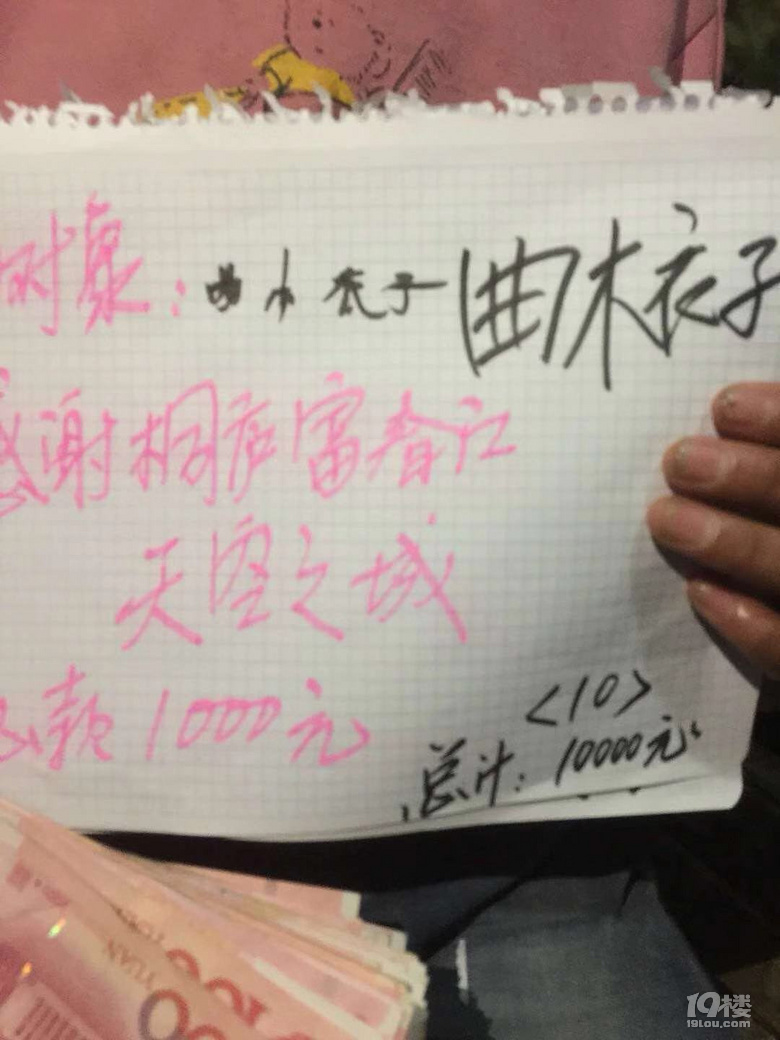 对象：曲木衣子 曲木衣子
感谢桐庐富春江
天空之城
款1000元
<10>
总计：10000元
YUAN
100
19楼
19lou.com